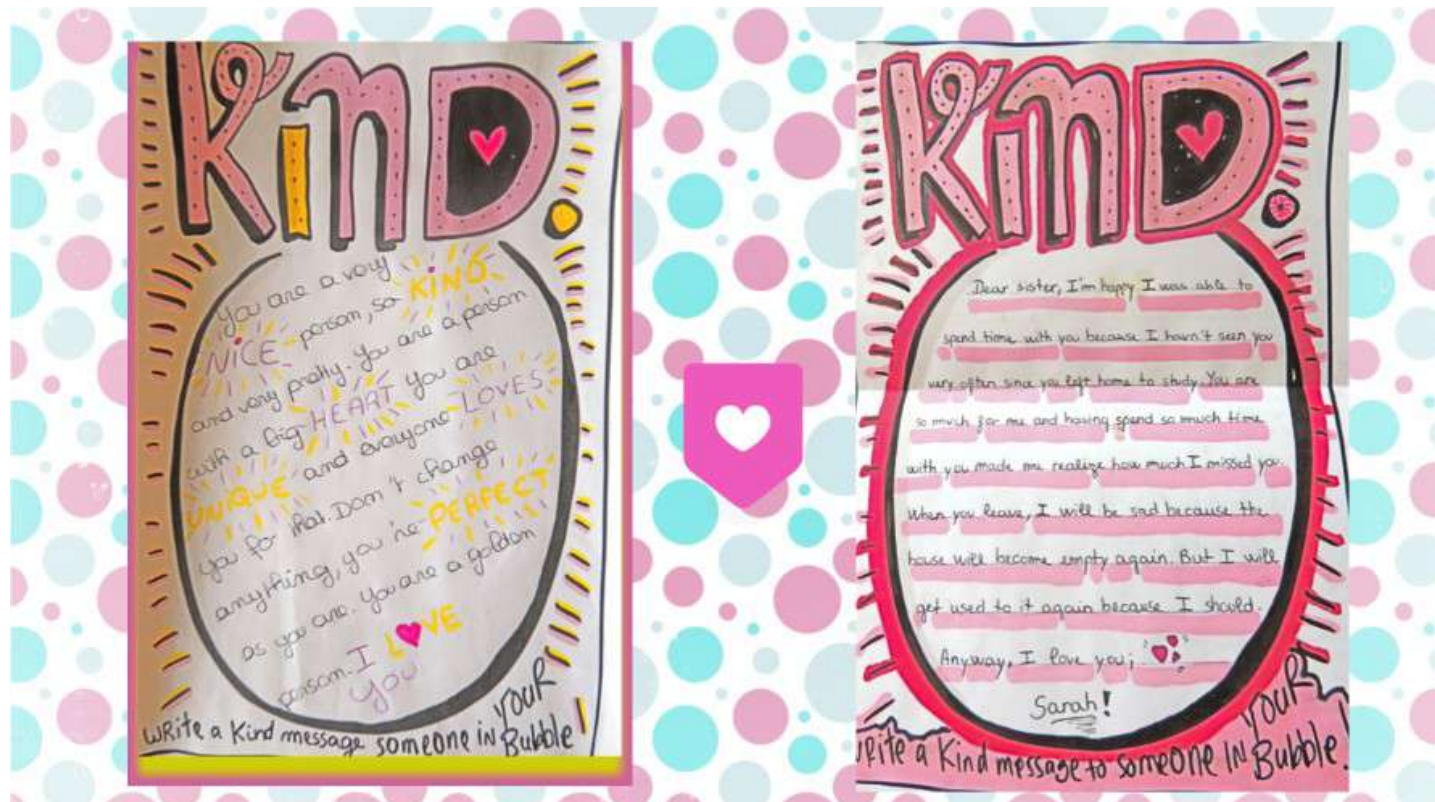 KiND.
You are a very
NiCE person, so KiND
and very pretty. You are a person
with a big HEART You are
UNiQUE and everyone LOVES
you for that. Don't change
anything, you 're PERFECT
as you are. You are a golden
person. I LOVE
you
WRite a Kind message someone iN YOUR Bubble!
KiND.
Dear sister, I'm happy I was able to
spend time with you because I havn't seen you
very often since you left home to study. You are
so much for me and having spend so much time
with you made me realize how much I missed you.
When you leave, I will be sad because the
house will become empty again. But I will
get used to it again because I should.
Anyway, I love you;
Sarah!
WRite a Kind message to someone IN YOUR Bubble!